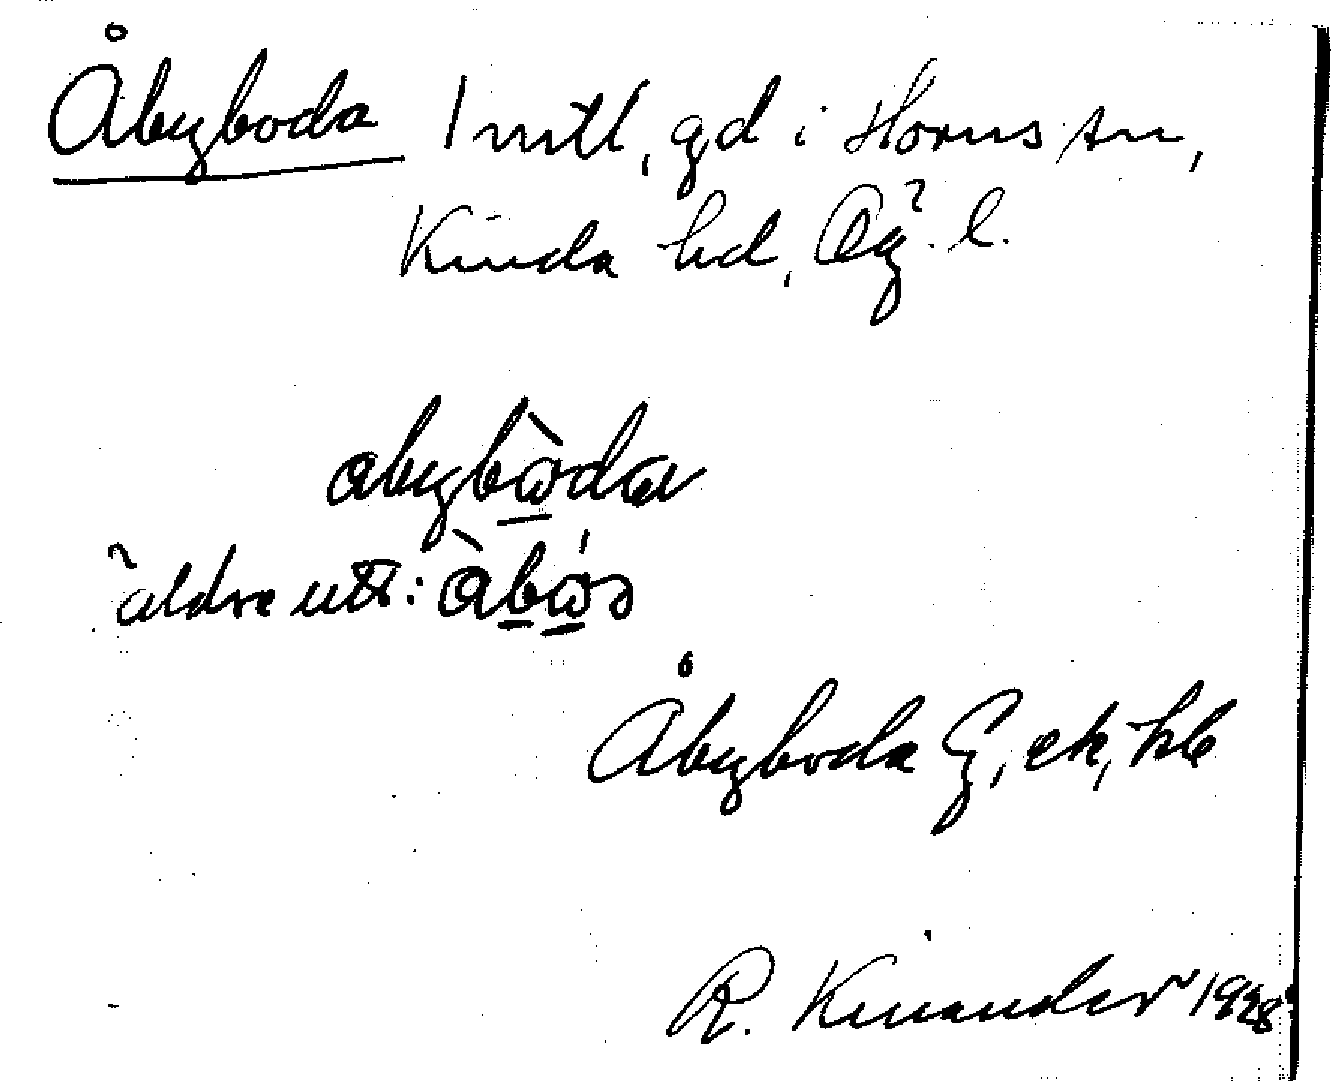 Åbyboda 1 mtl, gd i Horns sn,
Kinda hd, Ög. l.
abybòda
äldre utt: àbós
Åbyboda G, ek, hb
R. Kinander 1928